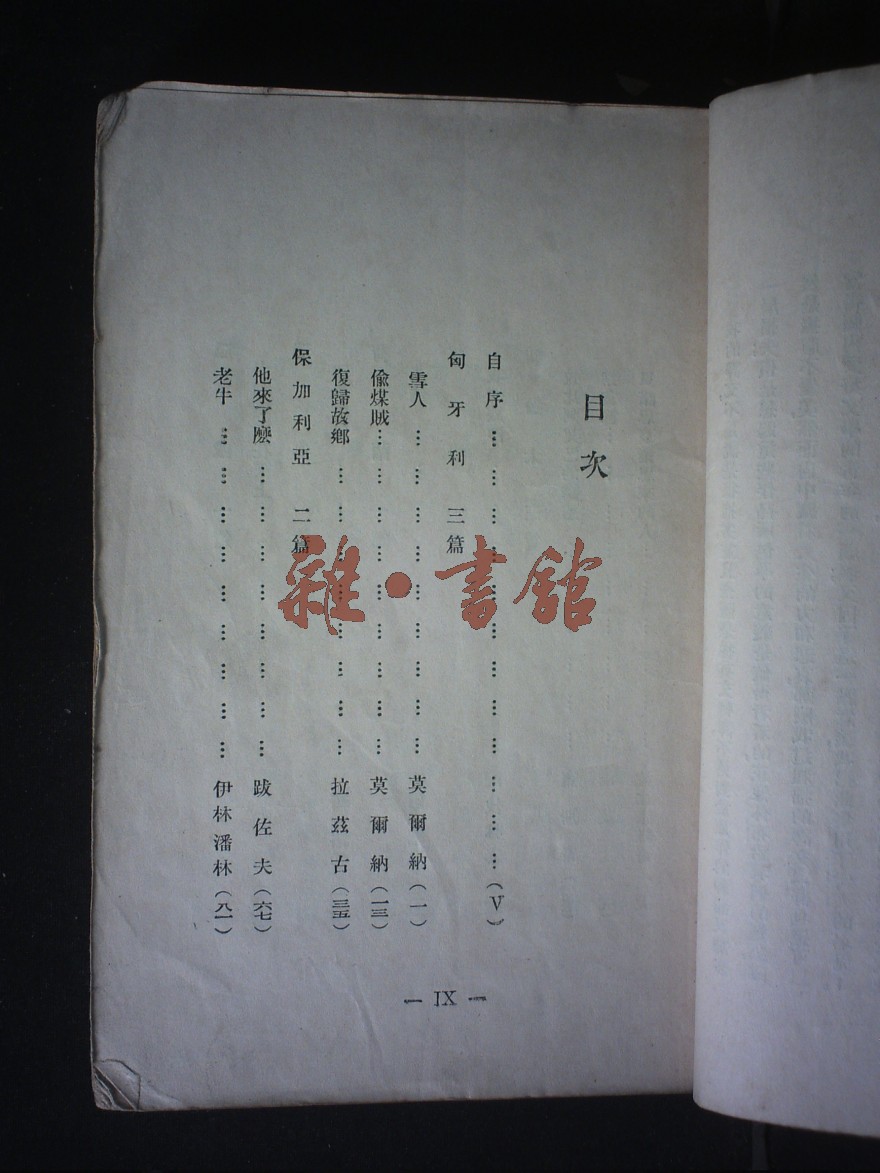 目次
自序 … … … … … … … … … … … (V)
匈牙利 三篇
雪人 … … … … … … … … … 莫爾納(一)
偸煤賊… … … … … … … … … 莫爾納(一三)
復歸故鄉 … … … … … … … … 拉茲古(三五)
保加利亞 二篇
他來了麽 … … … … … … … … 跋佐夫(六七)
老牛 … … … … … … … … … 伊林潘林(八一)
— IX —
雜·書舘